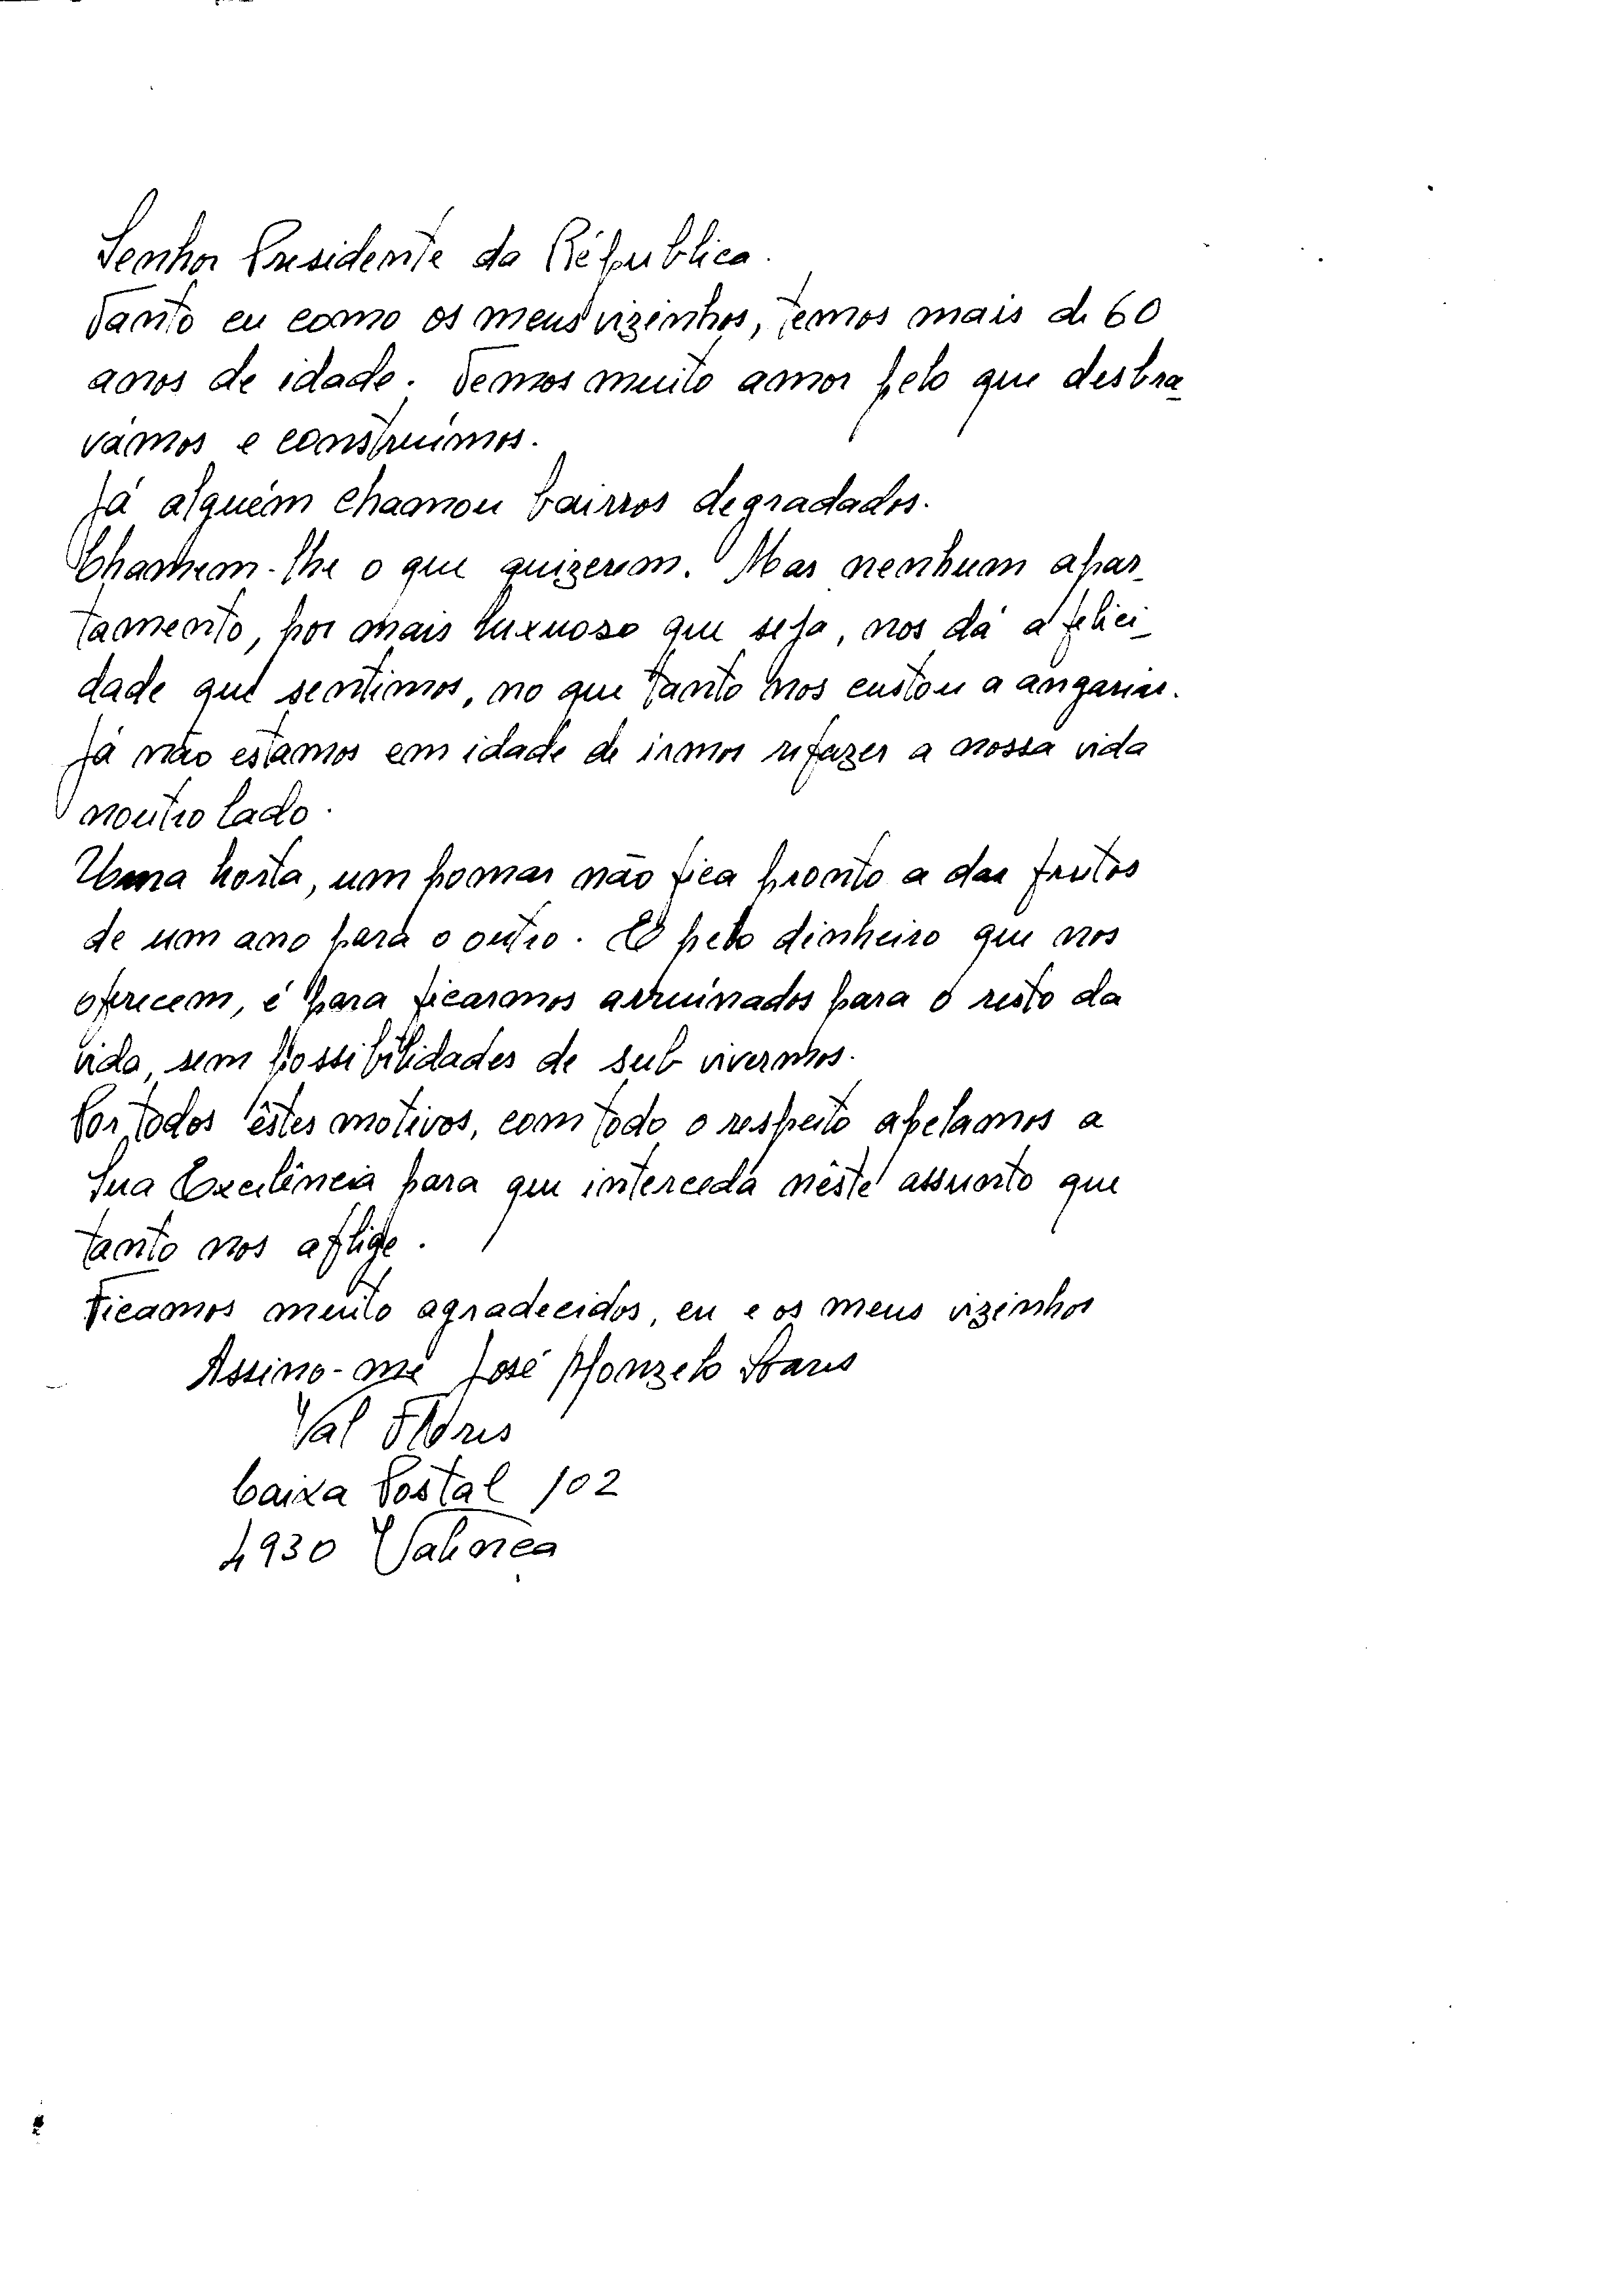 Senhor Presidente da Répública.
Tanto eu como os meus vizinhos, temos mais de 60
anos de idade. Temos muito amor pelo que desbra-
vámos e construímos.
Já alguém chamou bairros degradados.
Chamem-lhe o que quizerem. Mas nenhum apar-
tamento, por mais luxuoso que seja, nos dá a felici-
dade que sentimos, no que tanto nos custou a angariar.
Já não estamos em idade de irmos refazer a nossa vida
noutro lado.
Uma horta, um pomar não fica pronto a dar frutos
de um ano para o outro. E pelo dinheiro que nos
oferecem, é para ficarmos arruínados para o resto da
vida, sem possibilidades de sub vivermos.
Por todos êstes motivos, com todo o respeito apelamos a
Sua Excelência para que interceda nêste assunto que
tanto nos aflige.
Ficamos muito agradecidos, eu e os meus vizinhos
Assino-me José Monzelo Soares
Val Flores
Caixa Postal 102
4930 Valença